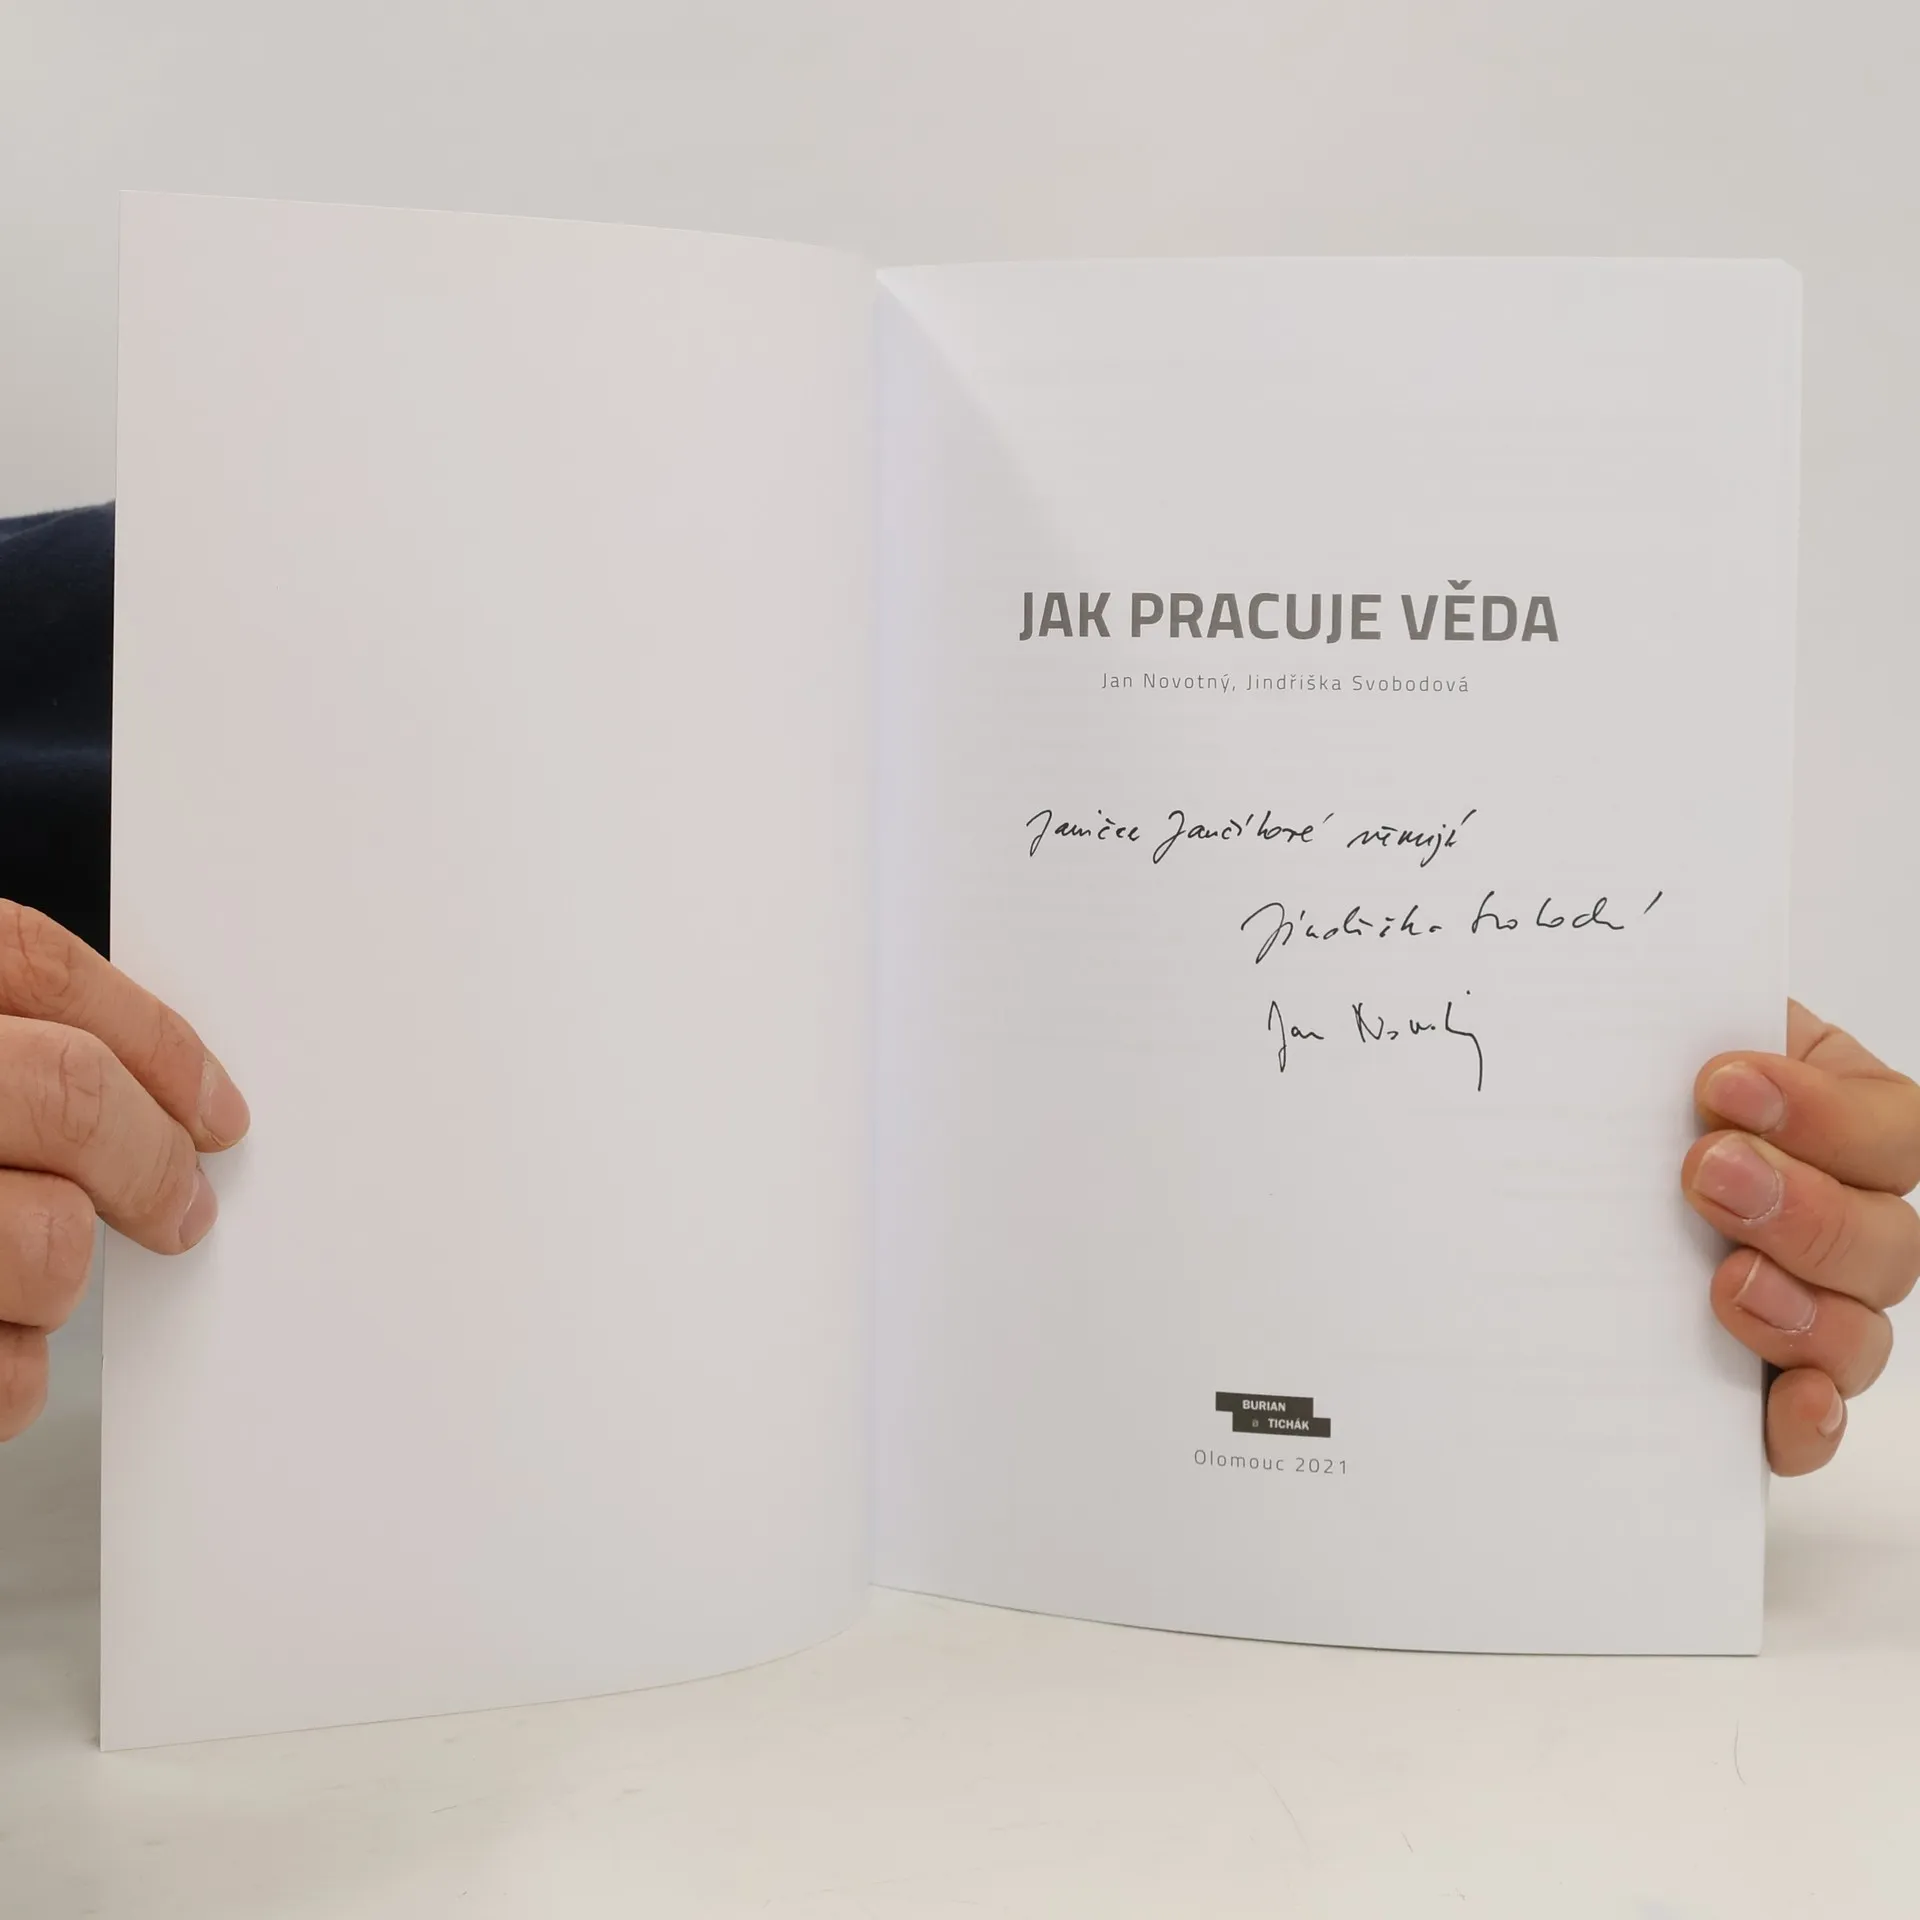 JAK PRACUJE VĚDA
Jan Novotný, Jindřiška Svobodová
Janičce Jančíkové věnují
Jindřiška Svobodová
Jan Novotný
BURIAN
a TICHÁK
Olomouc 2021